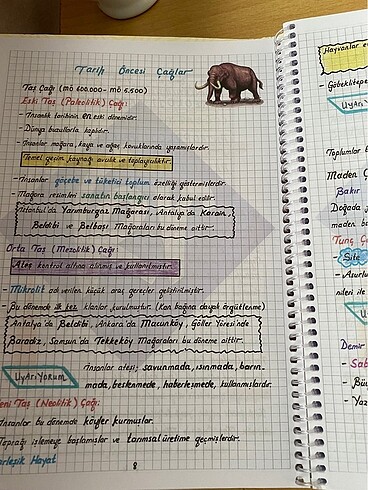 Tarih Öncesi Çağlar
Taş Çağı (MÖ 600.000- MÖ 5.500)
Eski Taş (Paleolitik) Çağı:
- İnsanlık tarihinin en eski dönemidir.
- Dünya buzullarla kaplıdır.
- İnsanlar mağara, kaya ve ağaç kovuklarında yaşamışlardır.
Temel geçim kaynağı avcılık ve toplayıcılıktır.
- İnsanlar göçebe ve tüketici toplum özelliği göstermişlerdir.
- Mağara resimleri sanatın başlangıcı olarak kabul edilir.
İstanbul'da Yarımburgaz Mağarası, Antalya'da Karain,
Beldibi ve Belbaşı Mağaraları bu döneme aittir.
Orta Taş (Mezolitik) Çağı:
Ateş kontrol altına alınmış ve kullanılmıştır.
- Mikrolit adı verilen küçük araç gereçler geliştirilmiştir.
- Bu dönemde ilk kez klanlar kurulmuştur. (Kan bağına dayalı örgütlenme)
Antalya'da Beldibi, Ankara'da Macunköy, Göller Yöresi'nde
Baradız, Samsun'da Tekkeköy Mağaraları bu döneme aittir.
UyarıYorum
İnsanlar ateşi; savunmada, ısınmada, barın-
mada, beslenmede, haberleşmede, kullanmışlardır.
eni Taş (Neolitik) Çağı:
İnsanlar bu dönemde köyler kurmuşlar.
Toprağı işlemeye başlamışlar ve tarımsal üretime geçmişlerdir.
erleşik Hayat
8
Hayvanlar e
- Göbeklitepe
Uyarı
Toplumlar b
Maden Ç
Bakır
Doğada
maden b
Tunç Ç
- Site
- Asurlu
nileri ile
Demir
- Sab
- Bü
- Yaz